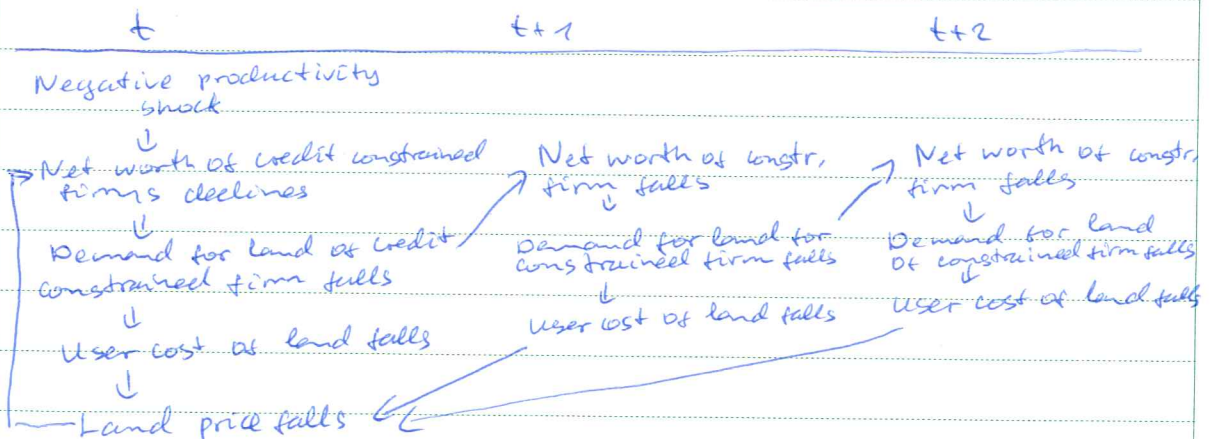 t t+1 t+2
Negative productivity
shock
Net worth of credit constrained
firms declines
Demand for land of credit
constrained firm falls
User cost of land falls
Land price falls
Net worth of constr.
firm falls
Demand for land for
constrained firm falls
User cost of land falls
Net worth of constr.
firm falls
Demand for land
of constrained firm falls
User cost of land falls